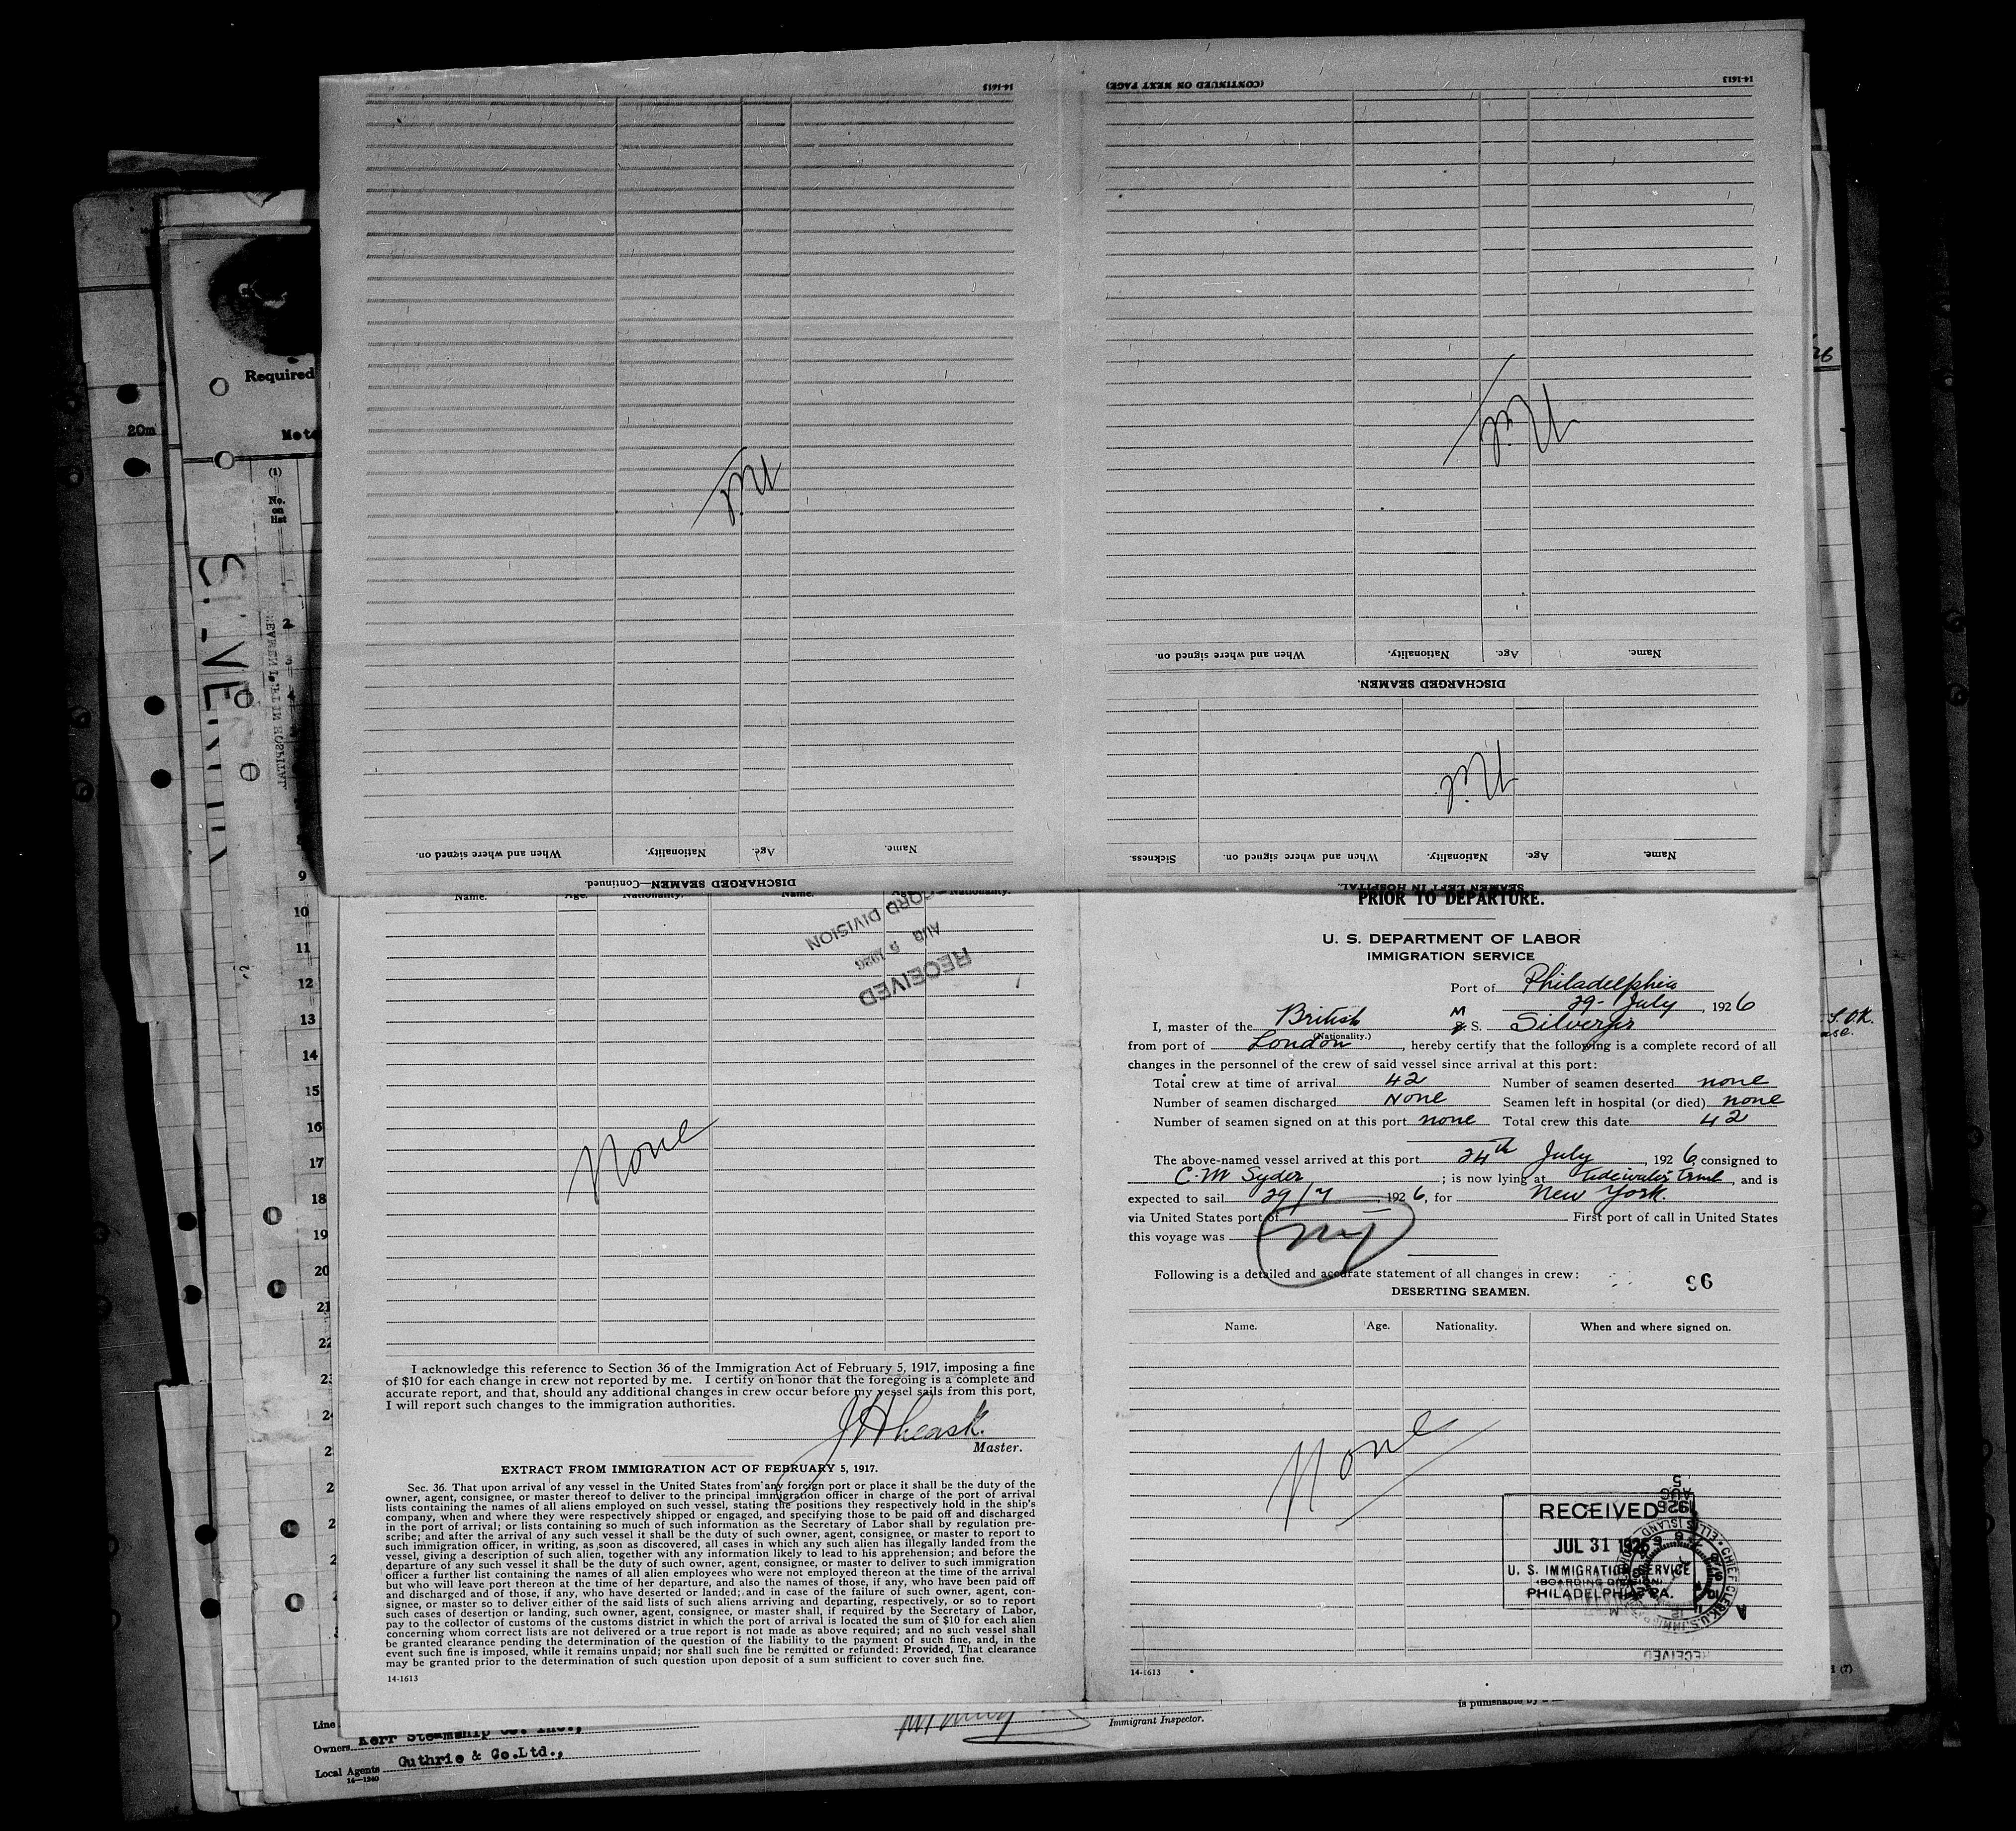 14-1613
Nil
Name. Age. Nationality. When and where signed on.
DISCHARGED SEAMEN—Continued.
14-1613
(CONTINUED ON NEXT PAGE)
Nil
Name. Age. Nationality. When and where signed on.
DISCHARGED SEAMEN.
Nil
Name. Age. Nationality. When and where signed on. Sickness.
SEAMEN LEFT IN HOSPITAL.
Required
20m
(1)
No.
on
list
2
3
4
9
10
11
12
13
14
15
16
17
18
19
20
21
Name. Age. Nationality. Name. Age. Nationality.
RECEIVED
AUG 5 1926
RECORD DIVISION
None
I acknowledge this reference to Section 36 of the Immigration Act of February 5, 1917, imposing a fine
of $10 for each change in crew not reported by me. I certify on honor that the foregoing is a complete and
accurate report, and that, should any additional changes in crew occur before my vessel sails from this port,
I will report such changes to the immigration authorities.
Master.
EXTRACT FROM IMMIGRATION ACT OF FEBRUARY 5, 1917.
Sec. 36. That upon arrival of any vessel in the United States from any foreign port or place it shall be the duty of the
owner, agent, consignee, or master thereof to deliver to the principal immigration officer in charge of the port of arrival
lists containing the names of all aliens employed on such vessel, stating the positions they respectively hold in the ship's
company, when and where they were respectively shipped or engaged, and specifying those to be paid off and discharged
in the port of arrival; or lists containing so much of such information as the Secretary of Labor shall by regulation pre-
scribe; and after the arrival of any such vessel it shall be the duty of such owner, agent, consignee, or master to report to
such immigration officer, in writing, as soon as discovered, all cases in which any such alien has illegally landed from the
vessel, giving a description of such alien, together with any information likely to lead to his apprehension; and before the
departure of any such vessel it shall be the duty of such owner, agent, consignee, or master to deliver to such immigration
officer a further list containing the names of all alien employees who were not employed thereon at the time of the arrival
but who will leave port thereon at the time of her departure, and also the names of those, if any, who have been paid off
and discharged and of those, if any, who have deserted or landed; and in case of the failure of such owner, agent, con-
signee, or master so to deliver either of the said lists of such aliens arriving and departing, respectively, or so to report
such cases of desertion or landing, such owner, agent, consignee, or master shall, if required by the Secretary of Labor,
pay to the collector of customs of the customs district in which the port of arrival is located the sum of $10 for each alien
concerning whom correct lists are not delivered or a true report is not made as above required; and no such vessel shall
be granted clearance pending the determination of the question of the liability to the payment of such fine, and, in the
event such fine is imposed, while it remains unpaid; nor shall such fine be remitted or refunded: Provided, That clearance
may be granted prior to the determination of such question upon deposit of a sum sufficient to cover such fine.
14-1613
PRIOR TO DEPARTURE.
U. S. DEPARTMENT OF LABOR
IMMIGRATION SERVICE
Port of Philadelphia
29- July, 1926
I, master of the British M S. Silverfir
(Nationality.)
from port of London, hereby certify that the following is a complete record of all
changes in the personnel of the crew of said vessel since arrival at this port:
Total crew at time of arrival 42 Number of seamen deserted none
Number of seamen discharged None Seamen left in hospital (or died) none
Number of seamen signed on at this port none Total crew this date 42
The above-named vessel arrived at this port 24th July, 1926, consigned to
C. M Syder; is now lying at Tidewater Trml, and is
expected to sail 29/7, 1926, for New York.
via United States port of First port of call in United States
this voyage was ny
Following is a detailed and accurate statement of all changes in crew:
96
DESERTING SEAMEN.
Name. Age. Nationality. When and where signed on.
None
RECEIVED
JUL 31 1926
U. S. IMMIGRATION SERVICE
BOARDING DIVISION
PHILADELPHIA, PA.
1926
AUG
5
RECEIVED
14-1613
Line
Owners Kerr Steamship Co. Inc.,
Local Agents Guthrie & Co.Ltd.,
14—1240
Immigrant Inspector.
is punishable by
(7)